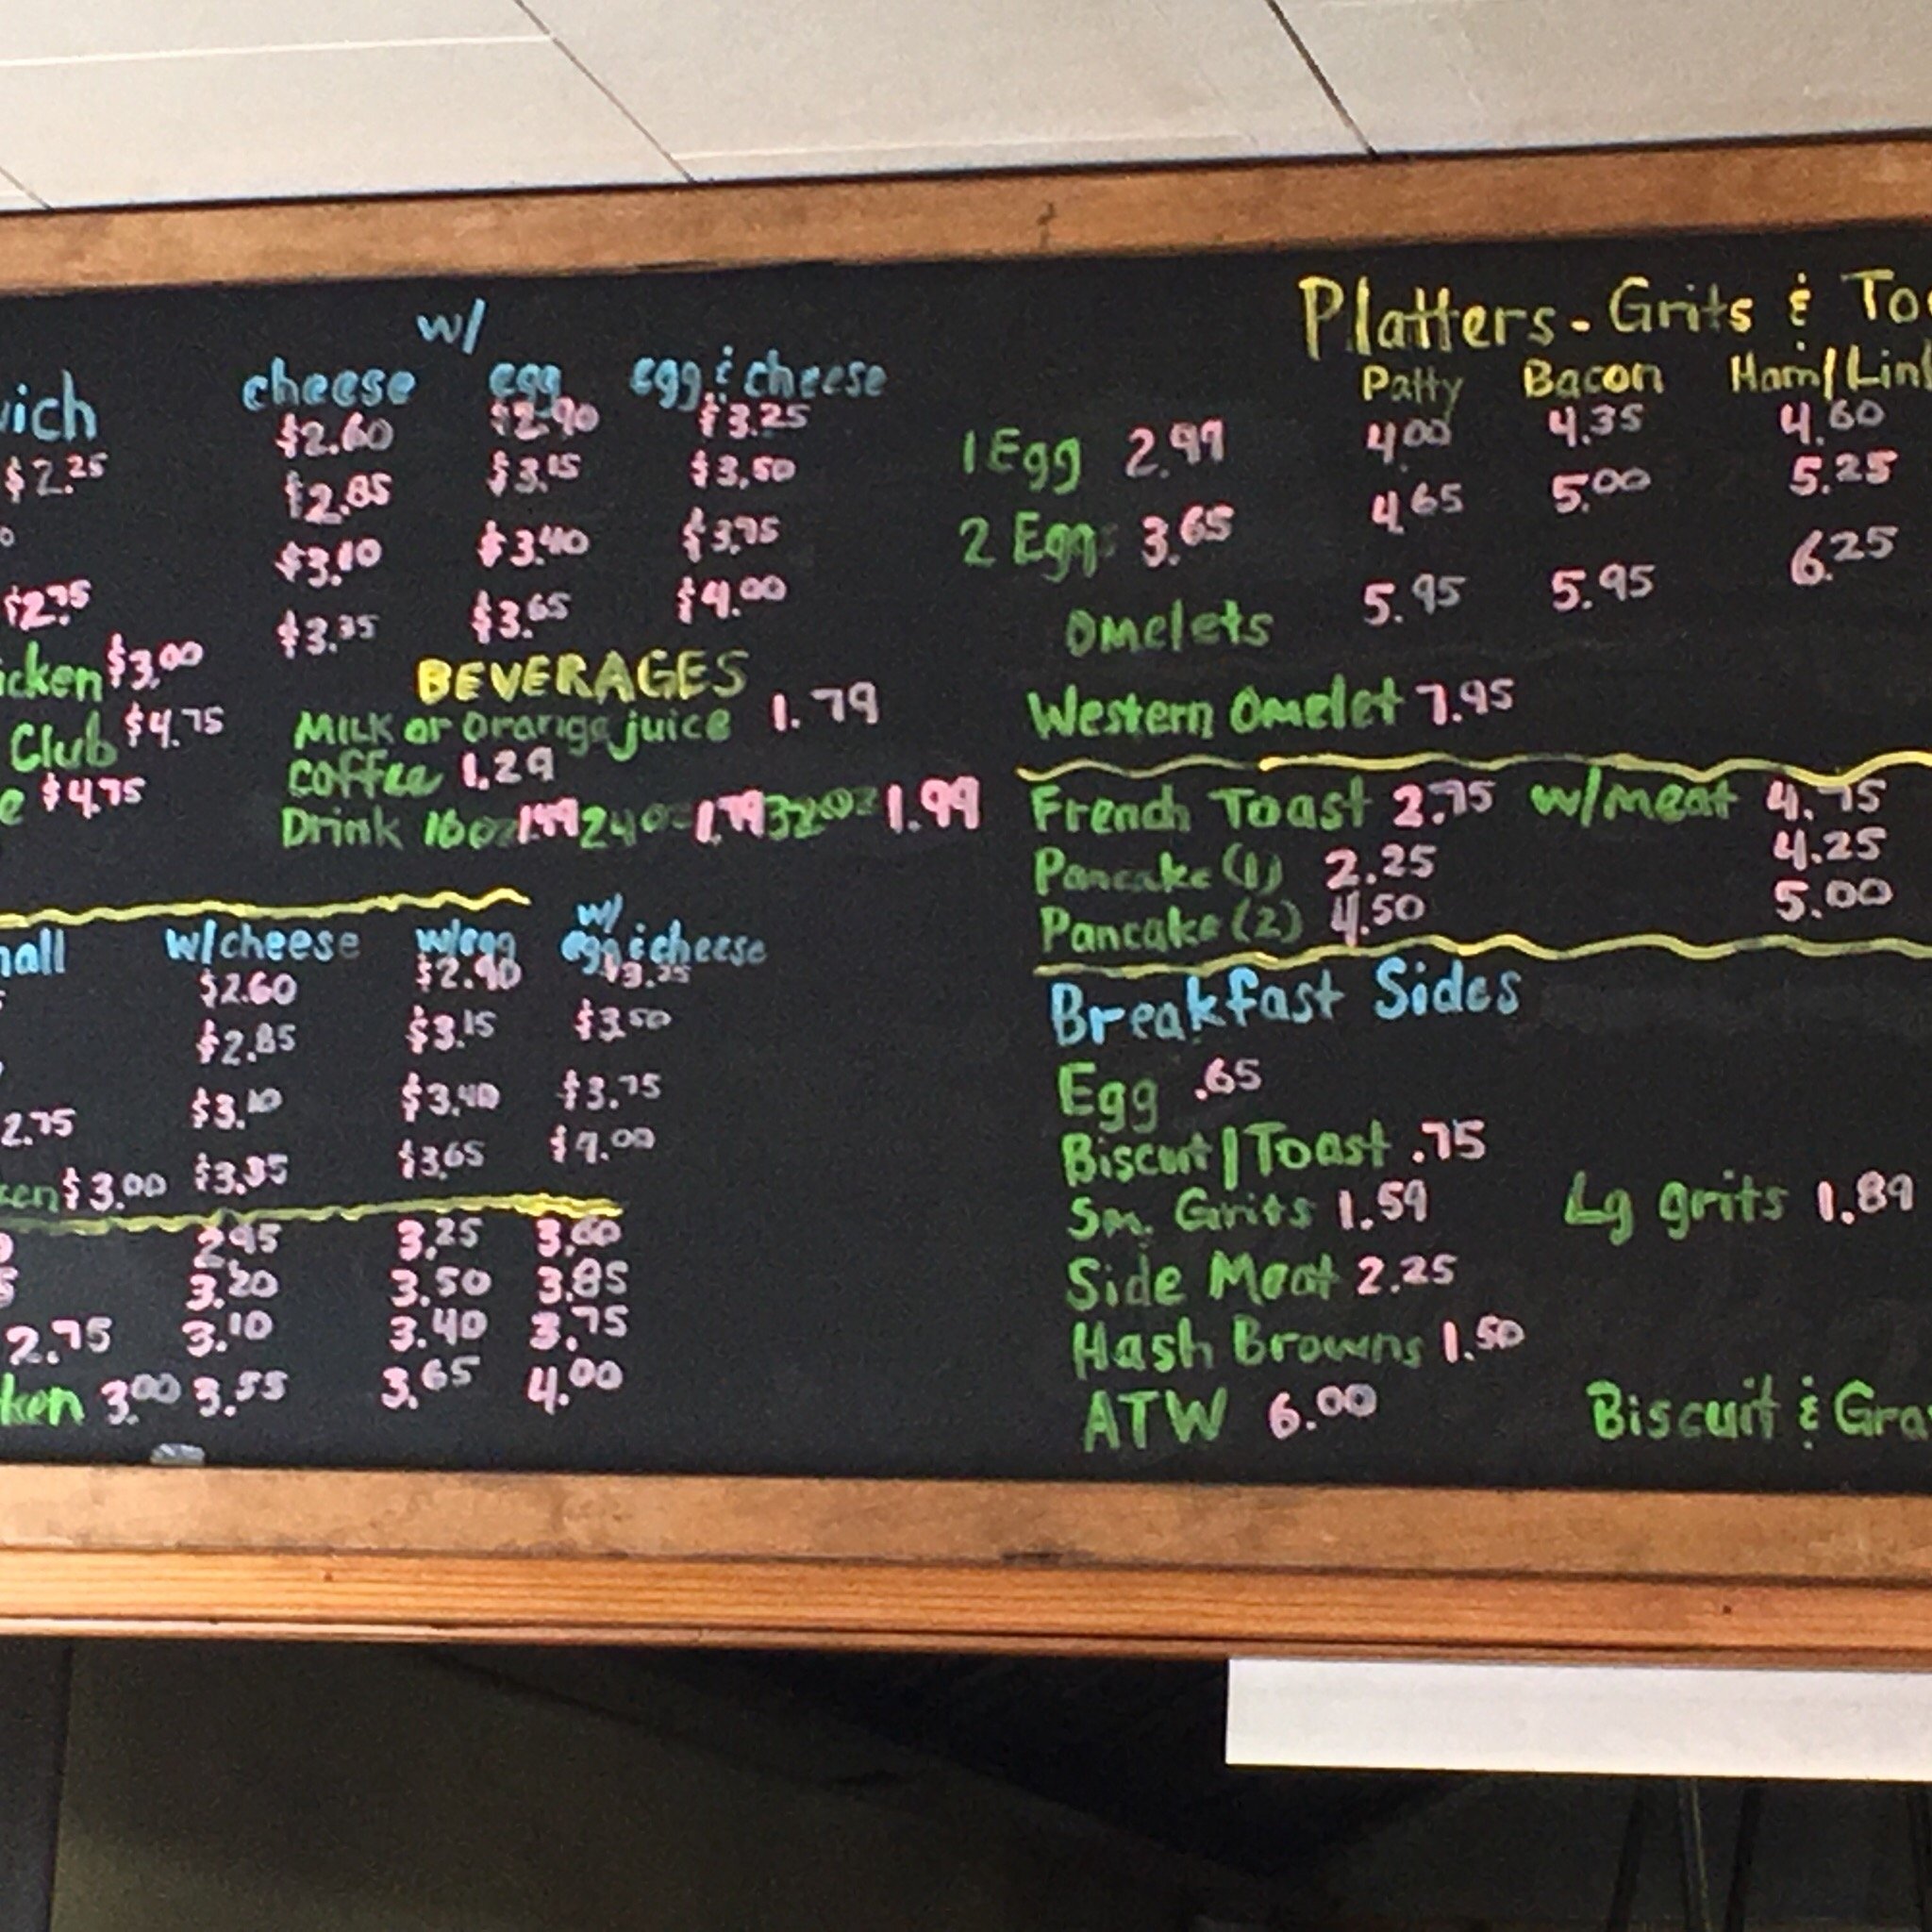 w/
cheese egg egg & cheese
$2.60 $2.90 $3.25
$2.25 $2.85 $3.15 $3.50
$3.10 $3.40 $3.75
$2.75 $3.35 $3.65 $4.00
$3.00
Club $4.75
$4.75
BEVERAGES
Milk or orange juice 1.79
coffee 1.29
Drink 16oz 1.49 24oz 1.79 32oz 1.99
w/
w/cheese w/egg egg & cheese
$2.60 $2.90 $3.25
$2.85 $3.15 $3.50
2.75 $3.10 $3.40 $3.75
$3.00 $3.35 $3.65 $4.00
2.95 3.25 3.60
3.20 3.50 3.85
2.75 3.10 3.40 3.75
3.00 3.55 3.65 4.00
Platters - Grits &
Patty Bacon Ham/Link
1 Egg 2.99 4.00 4.35 4.60
2 Egg 3.65 4.65 5.00 5.25
Omelets 5.95 5.95 6.25
Western Omelet 7.95
French Toast 2.75 w/meat 4.75
Pancake (1) 2.25 4.25
Pancake (2) 4.50 5.00
Breakfast Sides
Egg .65
Biscuit/Toast .75
Sm. Grits 1.59 Lg grits 1.89
Side Meat 2.25
Hash Browns 1.50
ATW 6.00 Biscuit &